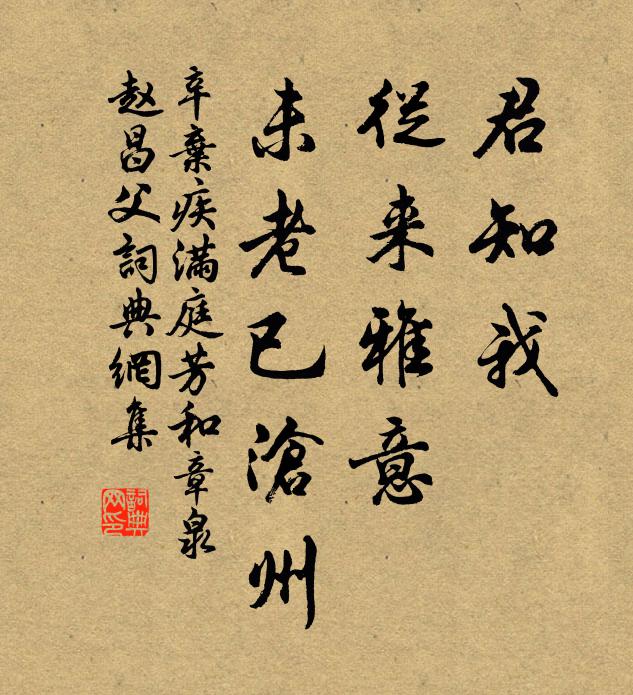 君知我
從来雅意
未老已滄州
辛棄疾满庭芳和章泉
赵昌父詞典網集
詞典网印